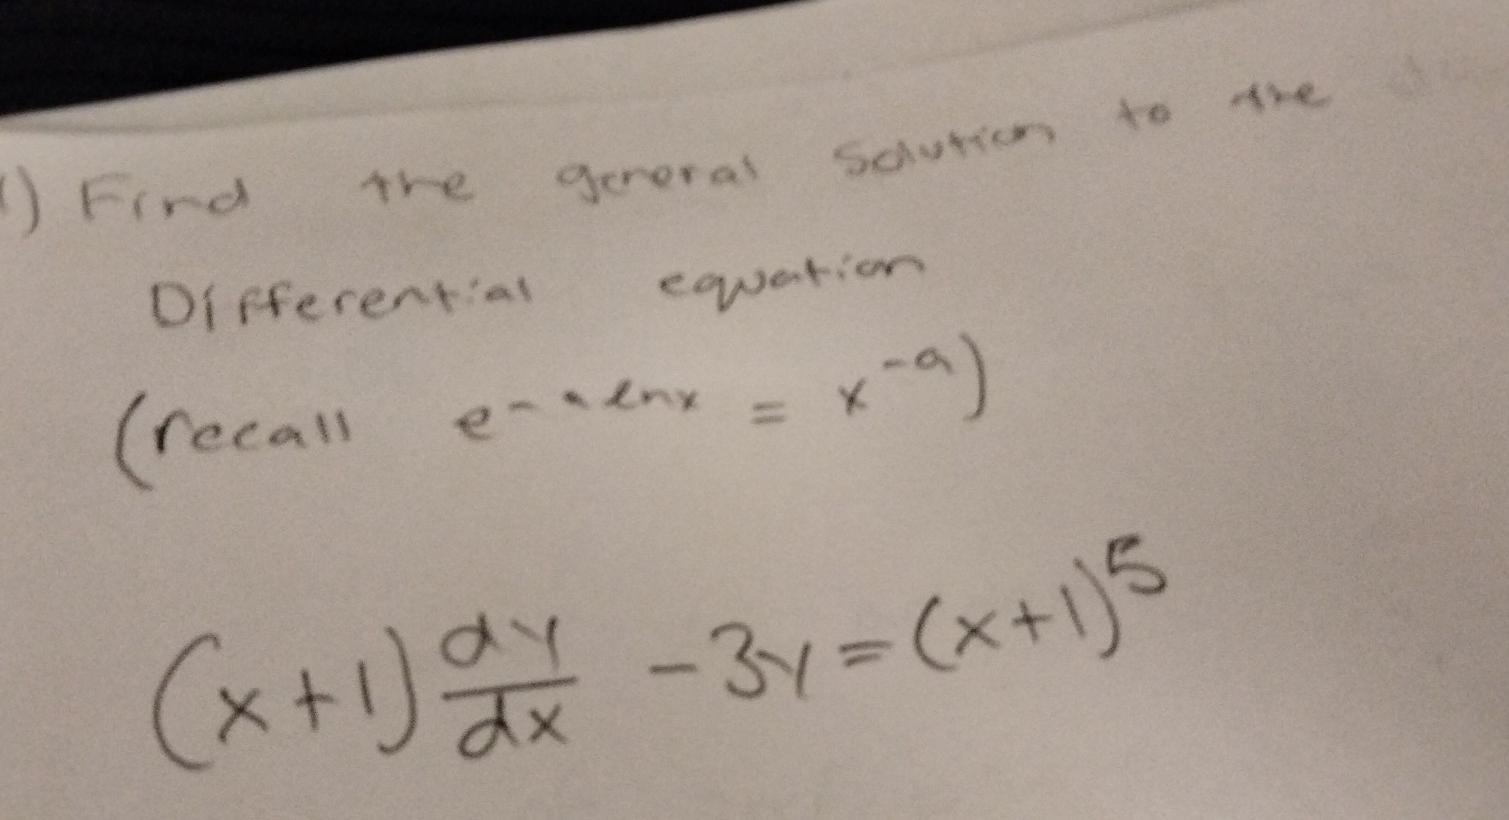 1) Find the general solution to the
Differential equation
(recall e^{-a ln x} = x^{-a})
(x+1) dy/dx - 3y = (x+1)^5